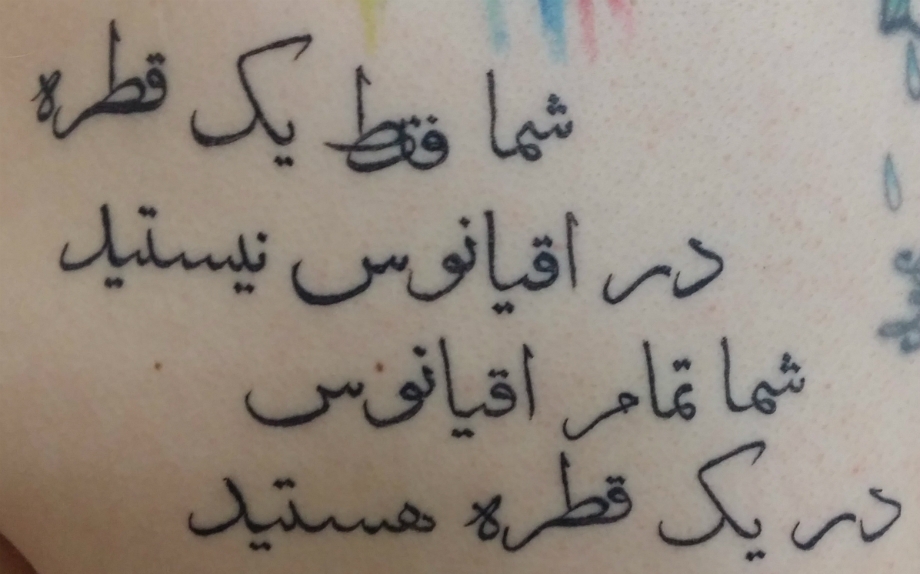 شما فقط یک قطره
در اقیانوس نیستید
شما تمام اقیانوس
در یک قطره هستید